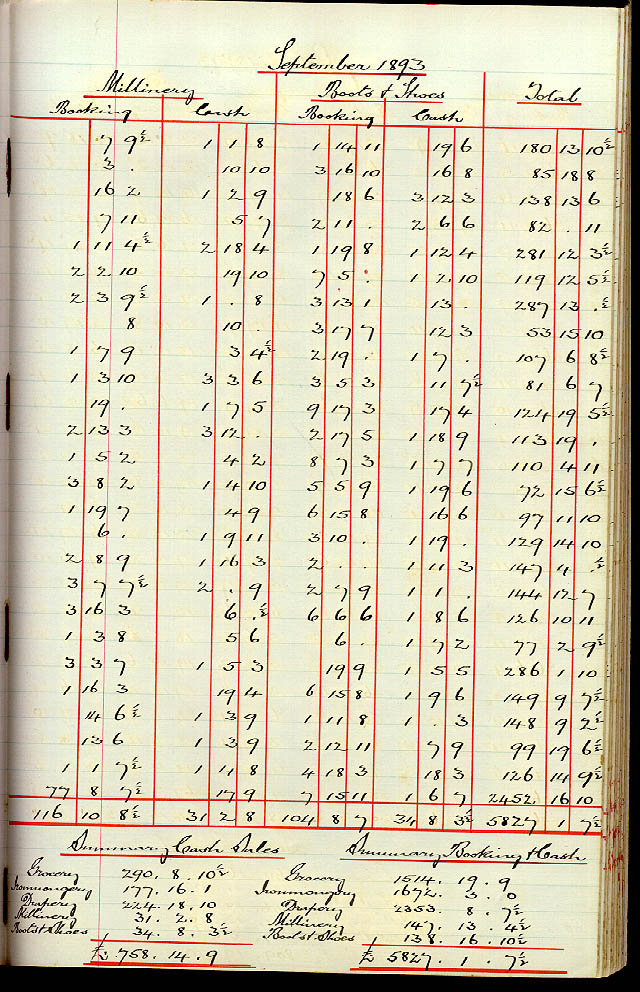 September 1893
Millinery Boots & Shoes Total
Booking Cash Booking Cash
7 9½ 1 1 8 1 14 11 19 6 180 13 10½
3 . 10 10 3 16 10 16 8 85 18 8
16 2 1 2 9 18 6 3 12 3 138 13 6
7 11 5 7 2 11 . 2 6 6 82 . 11
1 11 4½ 2 18 4 1 19 8 1 12 4 281 12 3½
2 2 10 19 10 7 5 . 1 2 10 119 12 5½
2 3 9½ 1 . 8 3 13 1 13 . 287 13 .½
8 10 . 3 17 7 12 3 53 15 10
1 7 9 3 4½ 2 19 . 1 7 . 107 6 8½
1 3 10 3 3 6 3 5 3 11 7½ 81 6 7
19 . 1 7 5 9 17 3 17 4 124 19 5½
2 13 3 3 12 . 2 17 5 1 18 9 113 19 .
1 5 2 4 2 8 7 3 1 7 7 110 4 11
3 8 2 1 4 10 5 5 9 1 19 6 72 15 6½
1 19 7 4 9 6 15 8 16 6 97 11 10
6 . 1 9 11 3 10 . 1 19 . 129 14 10
2 8 9 1 16 3 2 . . 1 11 3 147 4 .½
3 7 7½ 2 . 9 2 7 9 1 1 . 144 12 7
3 16 3 6 .½ 6 6 6 1 8 6 126 10 11
1 3 8 5 6 6 . 1 7 2 77 2 9½
3 3 7 1 5 3 19 9 1 5 5 286 1 10
1 16 3 19 4 6 15 8 1 9 6 149 9 7½
14 6½ 1 3 9 1 11 8 1 . 3 148 9 2½
13 6 1 3 9 2 12 11 7 9 99 19 6½
1 1 7½ 1 11 8 4 18 3 18 3 126 14 9½
77 8 7½ 17 9 7 15 11 1 6 7 2452 16 10
116 10 8½ 31 2 8 104 8 7 34 8 3½ 5827 1 7½
Summary Cash Sales Summary Booking & Cash
Grocery 290 . 8 . 10½ Grocery 1514 . 19 . 9
Ironmongery 177 . 16 . 1 Ironmongery 1672 . 3 . 0
Drapery 224 . 18 . 10 Drapery 2353 . 8 . 7½
Millinery 31 . 2 . 8 Millinery 147 . 13 . 4½
Boots & Shoes 34 . 8 . 3½ Boots & Shoes 138 . 16 . 10½
£ 758 . 14 . 9 £ 5827 . 1 . 7½